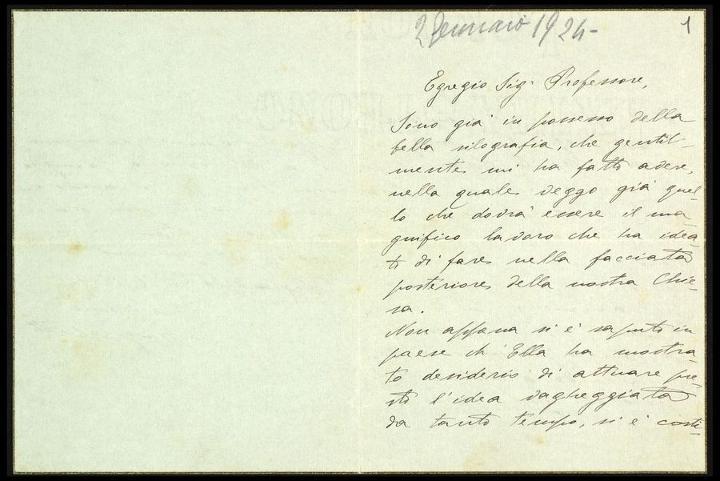 2 Gennaio 1924-
1
Egregio Sig. Professore,
Sono già in possesso della
bella silografia, che gentil-
mente mi ha fatto avere,
nella quale veggo già quel-
lo che dovrà essere il ma-
gnifico lavoro che ha idea-
to di fare nella facciata
posteriore della nostra Chie-
sa.
Non appena si è saputo in
paese ch' Ella ha mostra-
to desiderio di attuare pre-
sto l'idea vagheggiata
da tanto tempo, si è costi-